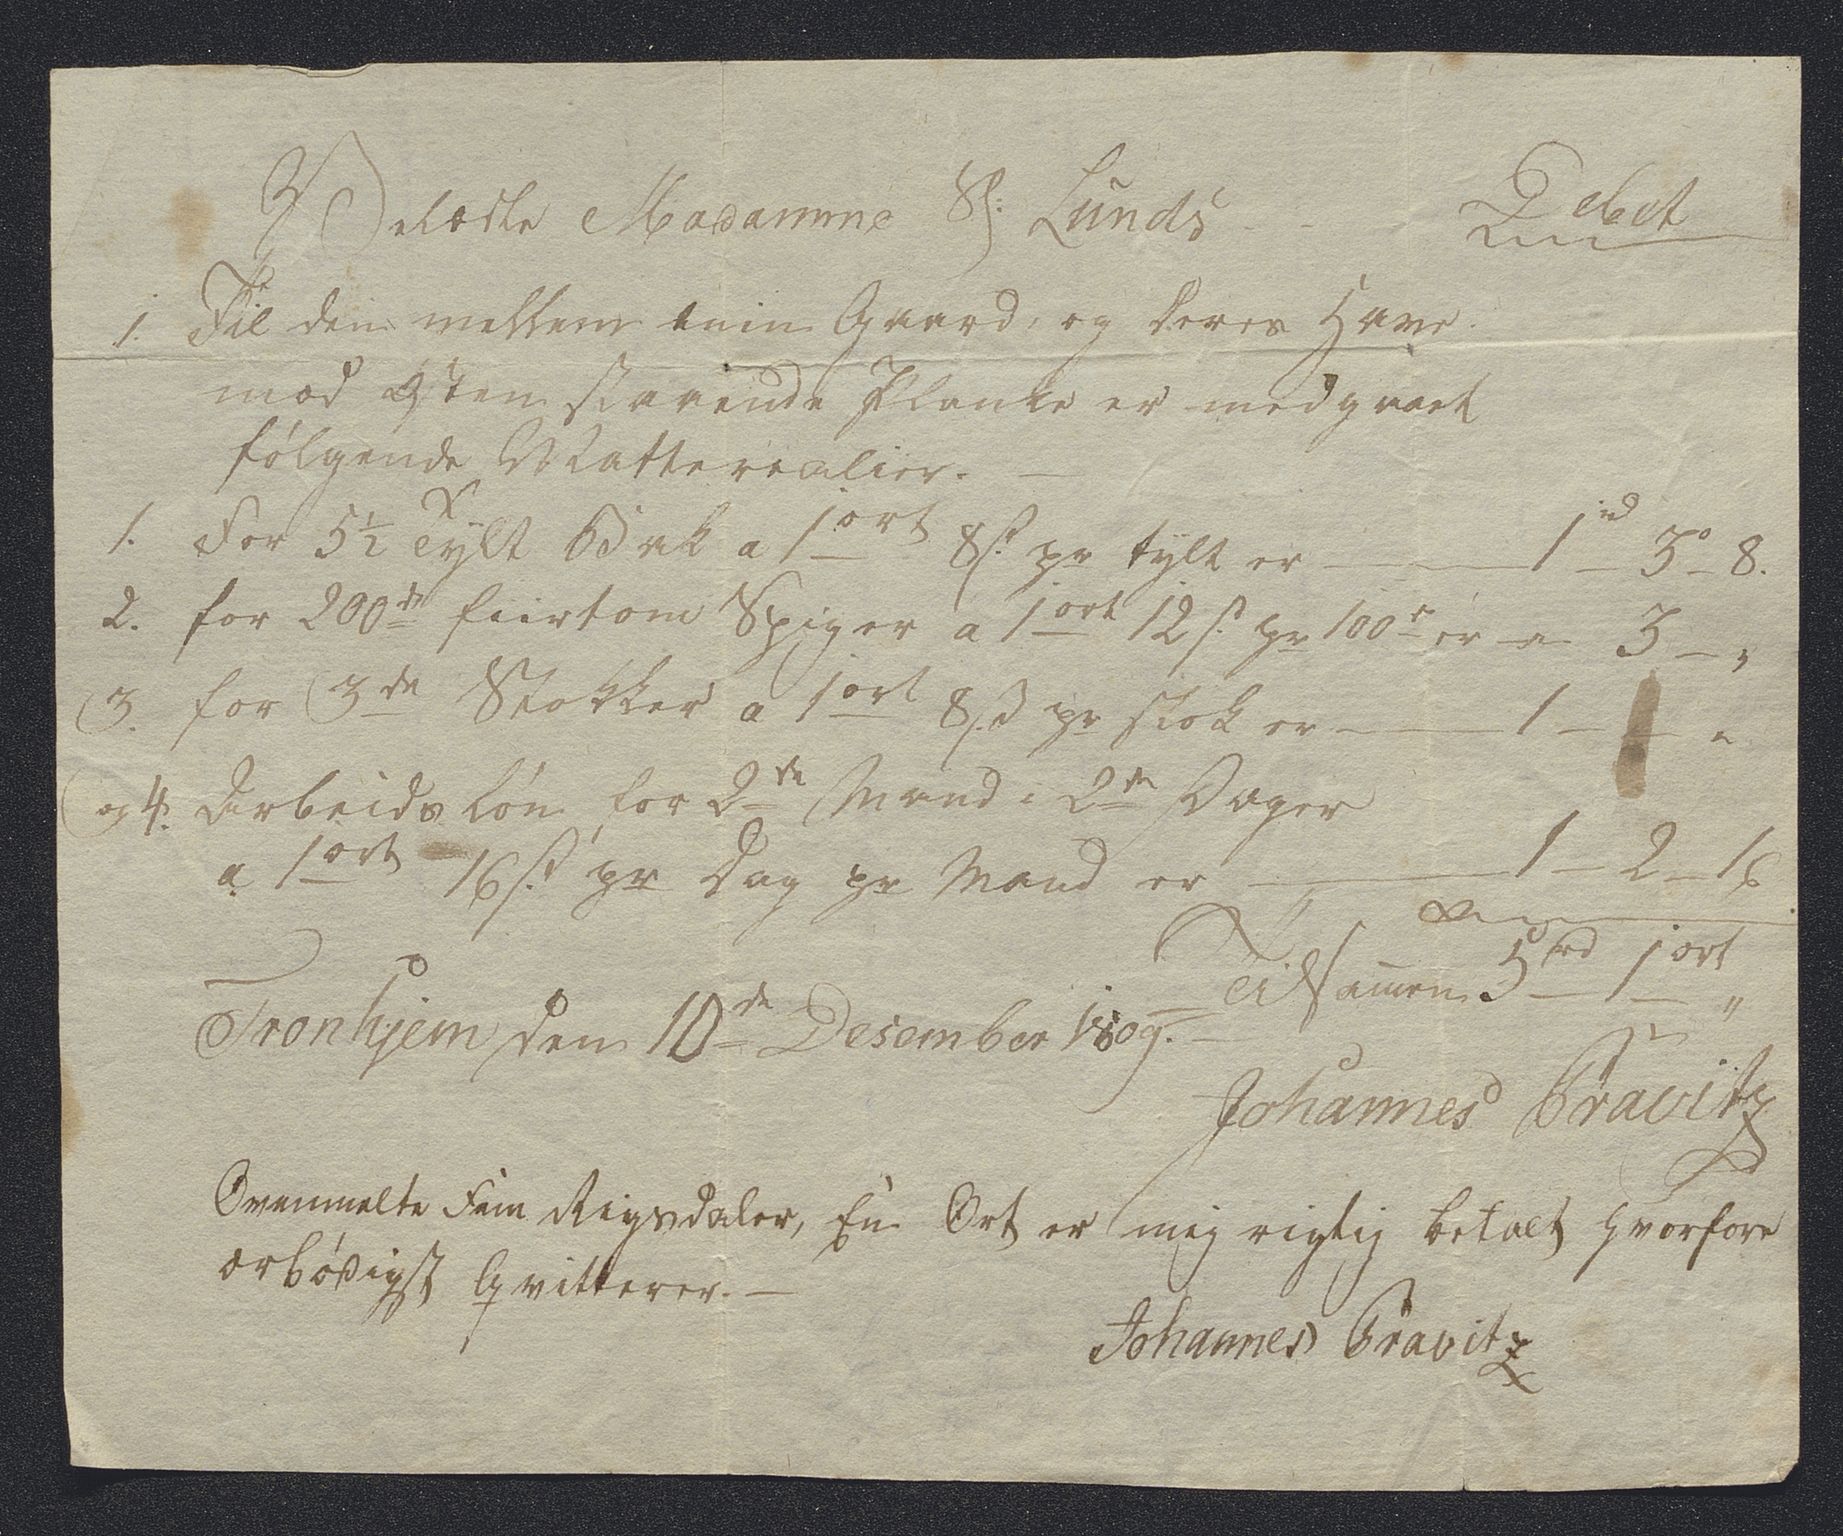 Velædle Madamme Sl: Lunds - - Debet
1. Til den mellem min Gaard, og deres Have
mod Østen staaende Planke er medgaaet
følgende Matterealier. —
1. For 5½ Tylt Bak a 1 ort 8 s. pr tylt er — 1 rd — 3 o — 8.
2. for 200de fiirtom Spiger a 1 ort 12 s. pr 100r er — " 3 — "
3. for 3de Stokker a 1 ort 8 s. pr stok er — 1 — — "
og 4. Arbeidsløn for 2de Mand i 2de Dager
a 1 ort 16 s. pr Dag pr Mand er — 1 — 2 — 16
Tilsamen 5 rd — 1 ort — "
Tronhjem den 10de Desember 1809. —
Johannes Cravitz
Ovenmelte Fem Rigsdaler, En Ort er mig rigtig betalt hvorfore
ærbødigst Qvitterer. —
Johannes Cravitz